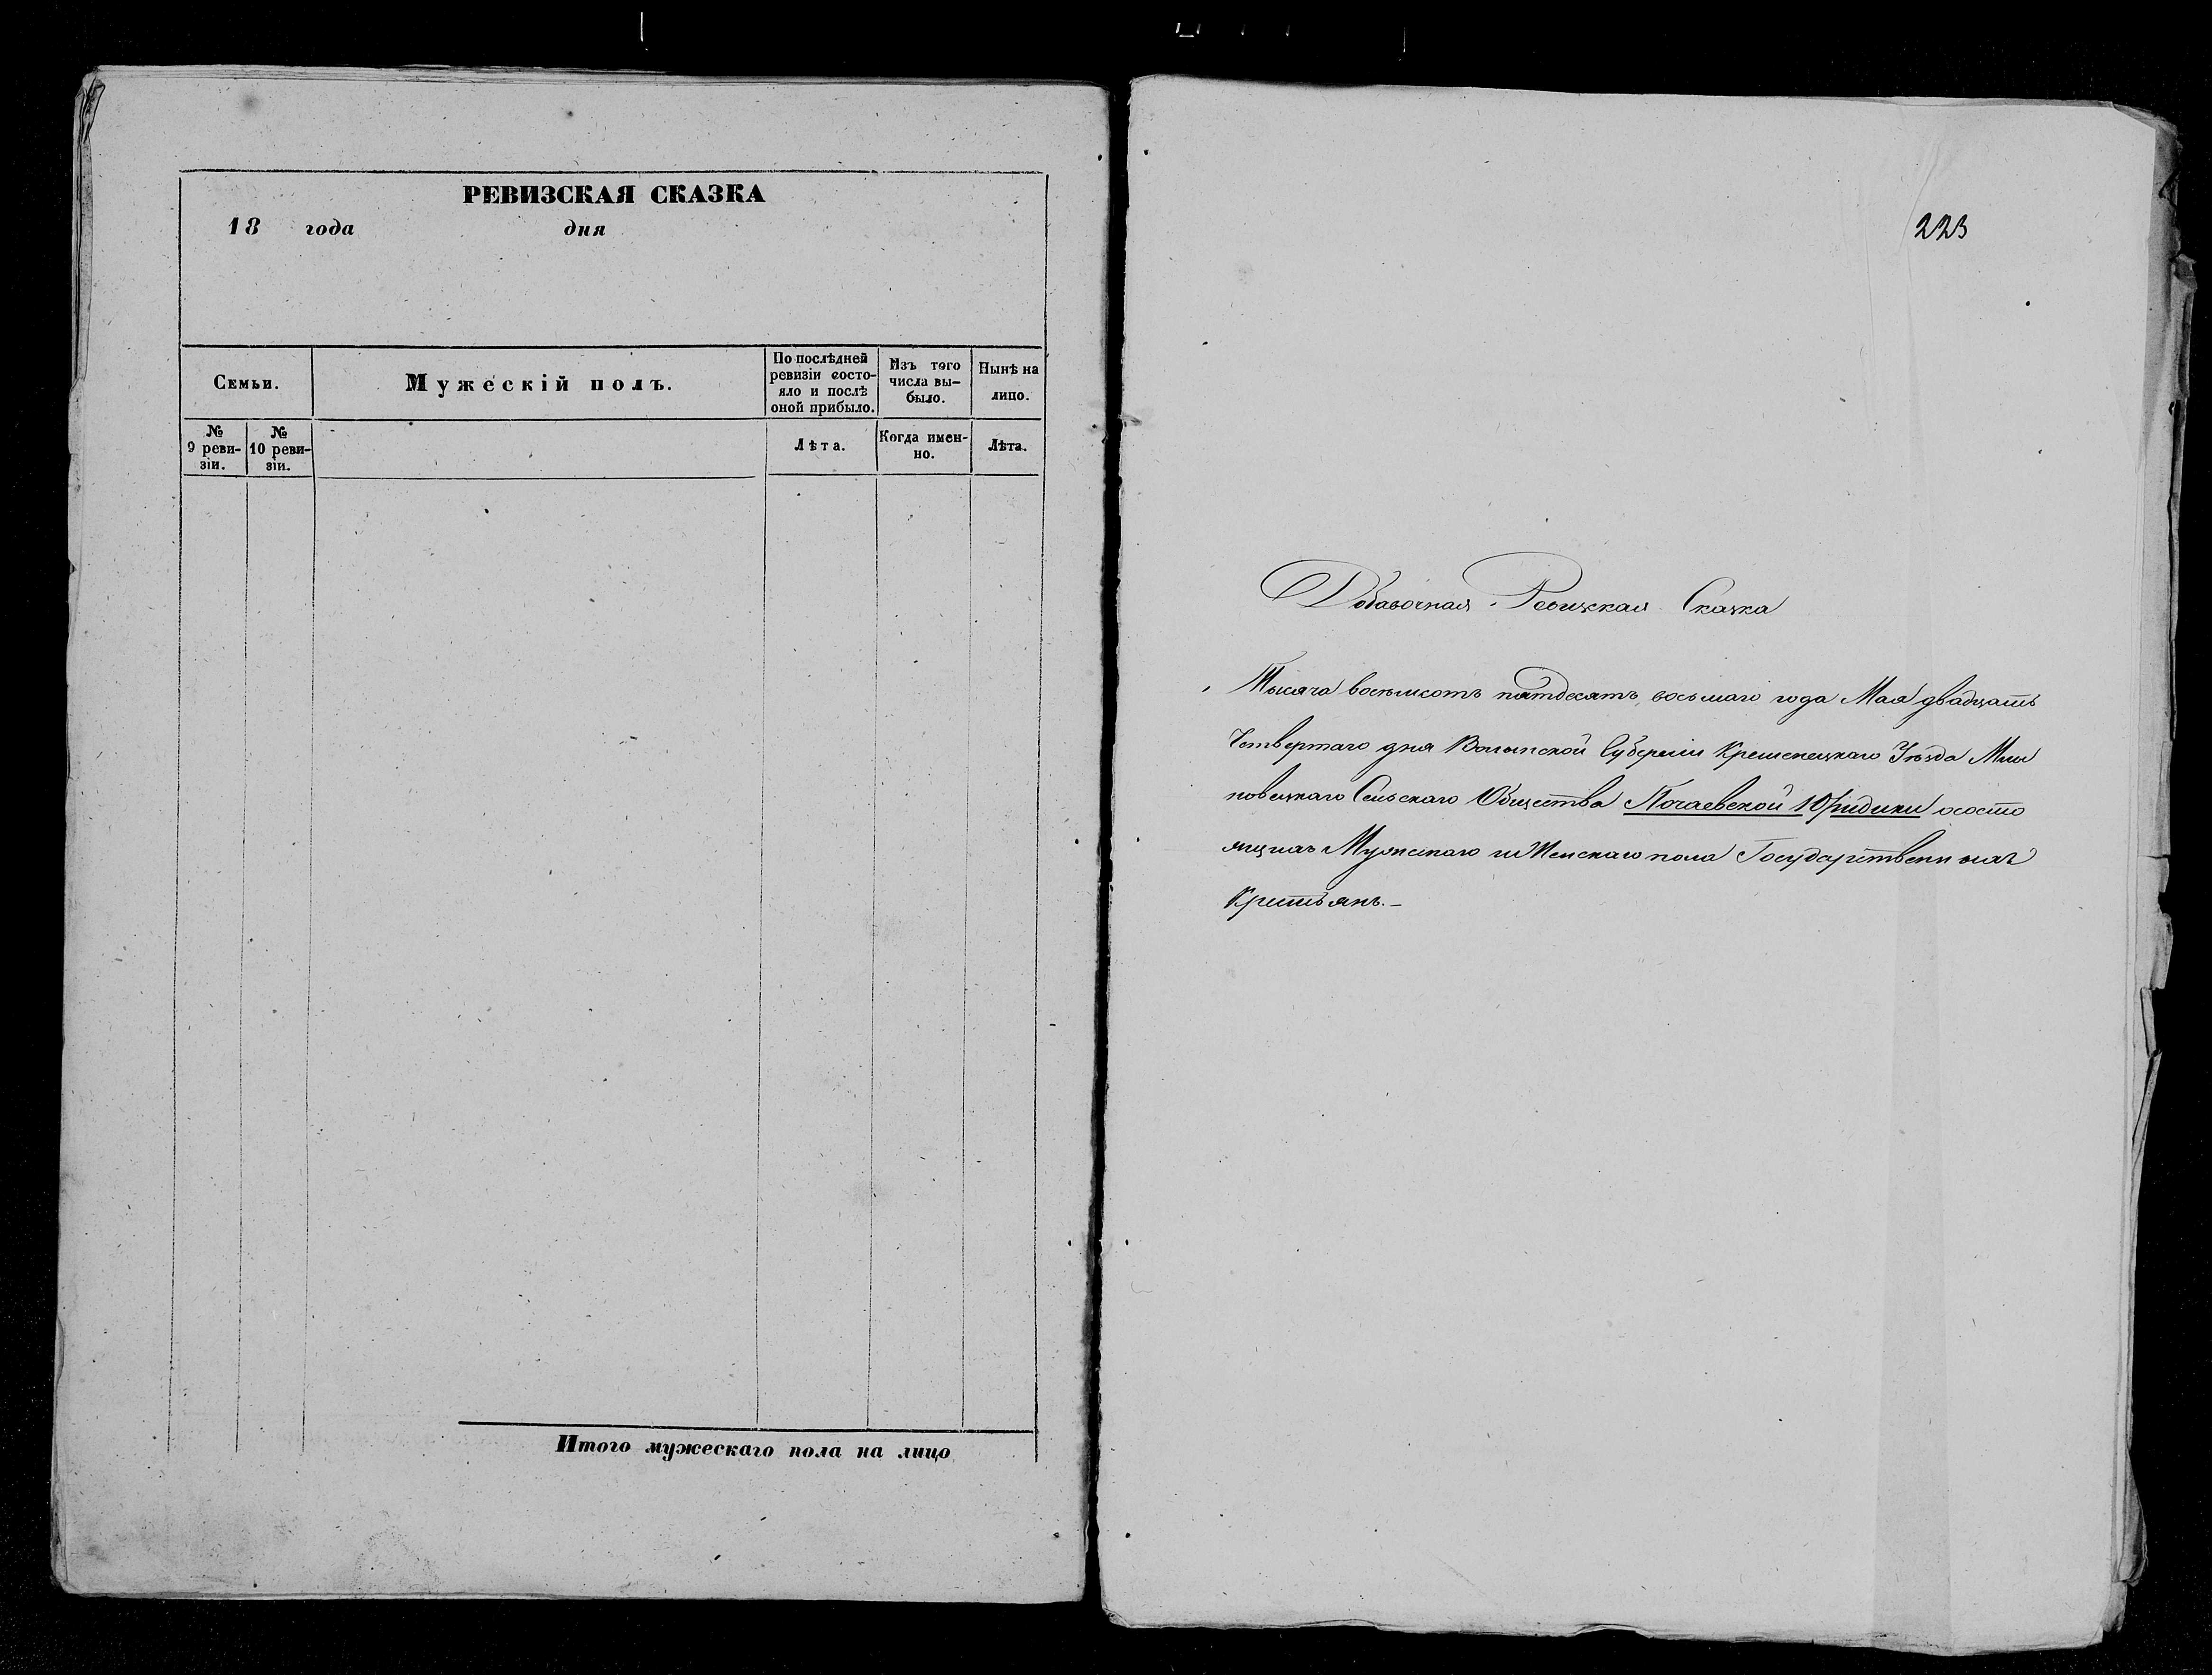 РЕВИЗСКАЯ СКАЗКА
18 года дня
Семьи.
Мужескій полъ.
По послѣдней
ревизіи состо-
яло и послѣ
оной прибыло.
Изъ того
числа вы-
было.
Нынѣ на
лицо.
№
9 реви-
зіи.
№
10 реви-
зіи.
Лѣта.
Когда имен-
но.
Лѣта.
Итого мужескаго пола на лицо
223
Добавочная Ревизкая Сказка
Тысяча восемсотъ пятдесятъ восьмаго года Мая двадцать
Четвертаго дня Волынской Губерніи Кременецкаго Уѣзда
новецкаго Сельскаго Общества Почаевской Юридики о состо
ящихъ Мужскаго и Женскаго пола Государственныхъ
Крестьянъ.-